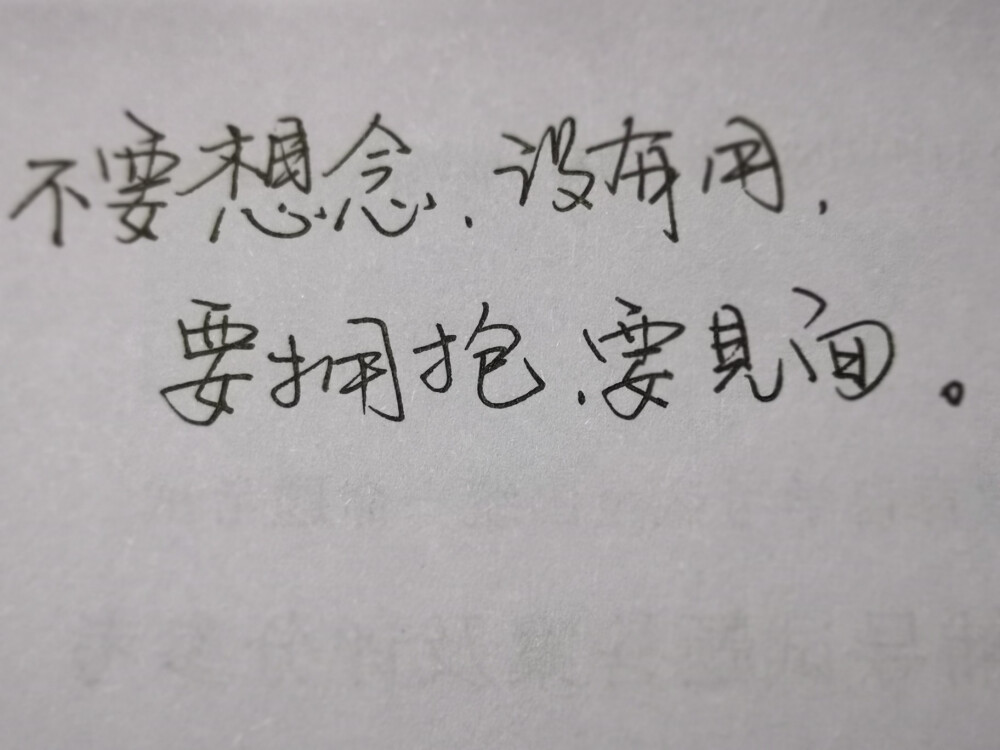 不要想念,没有用,
要拥抱,要见面。